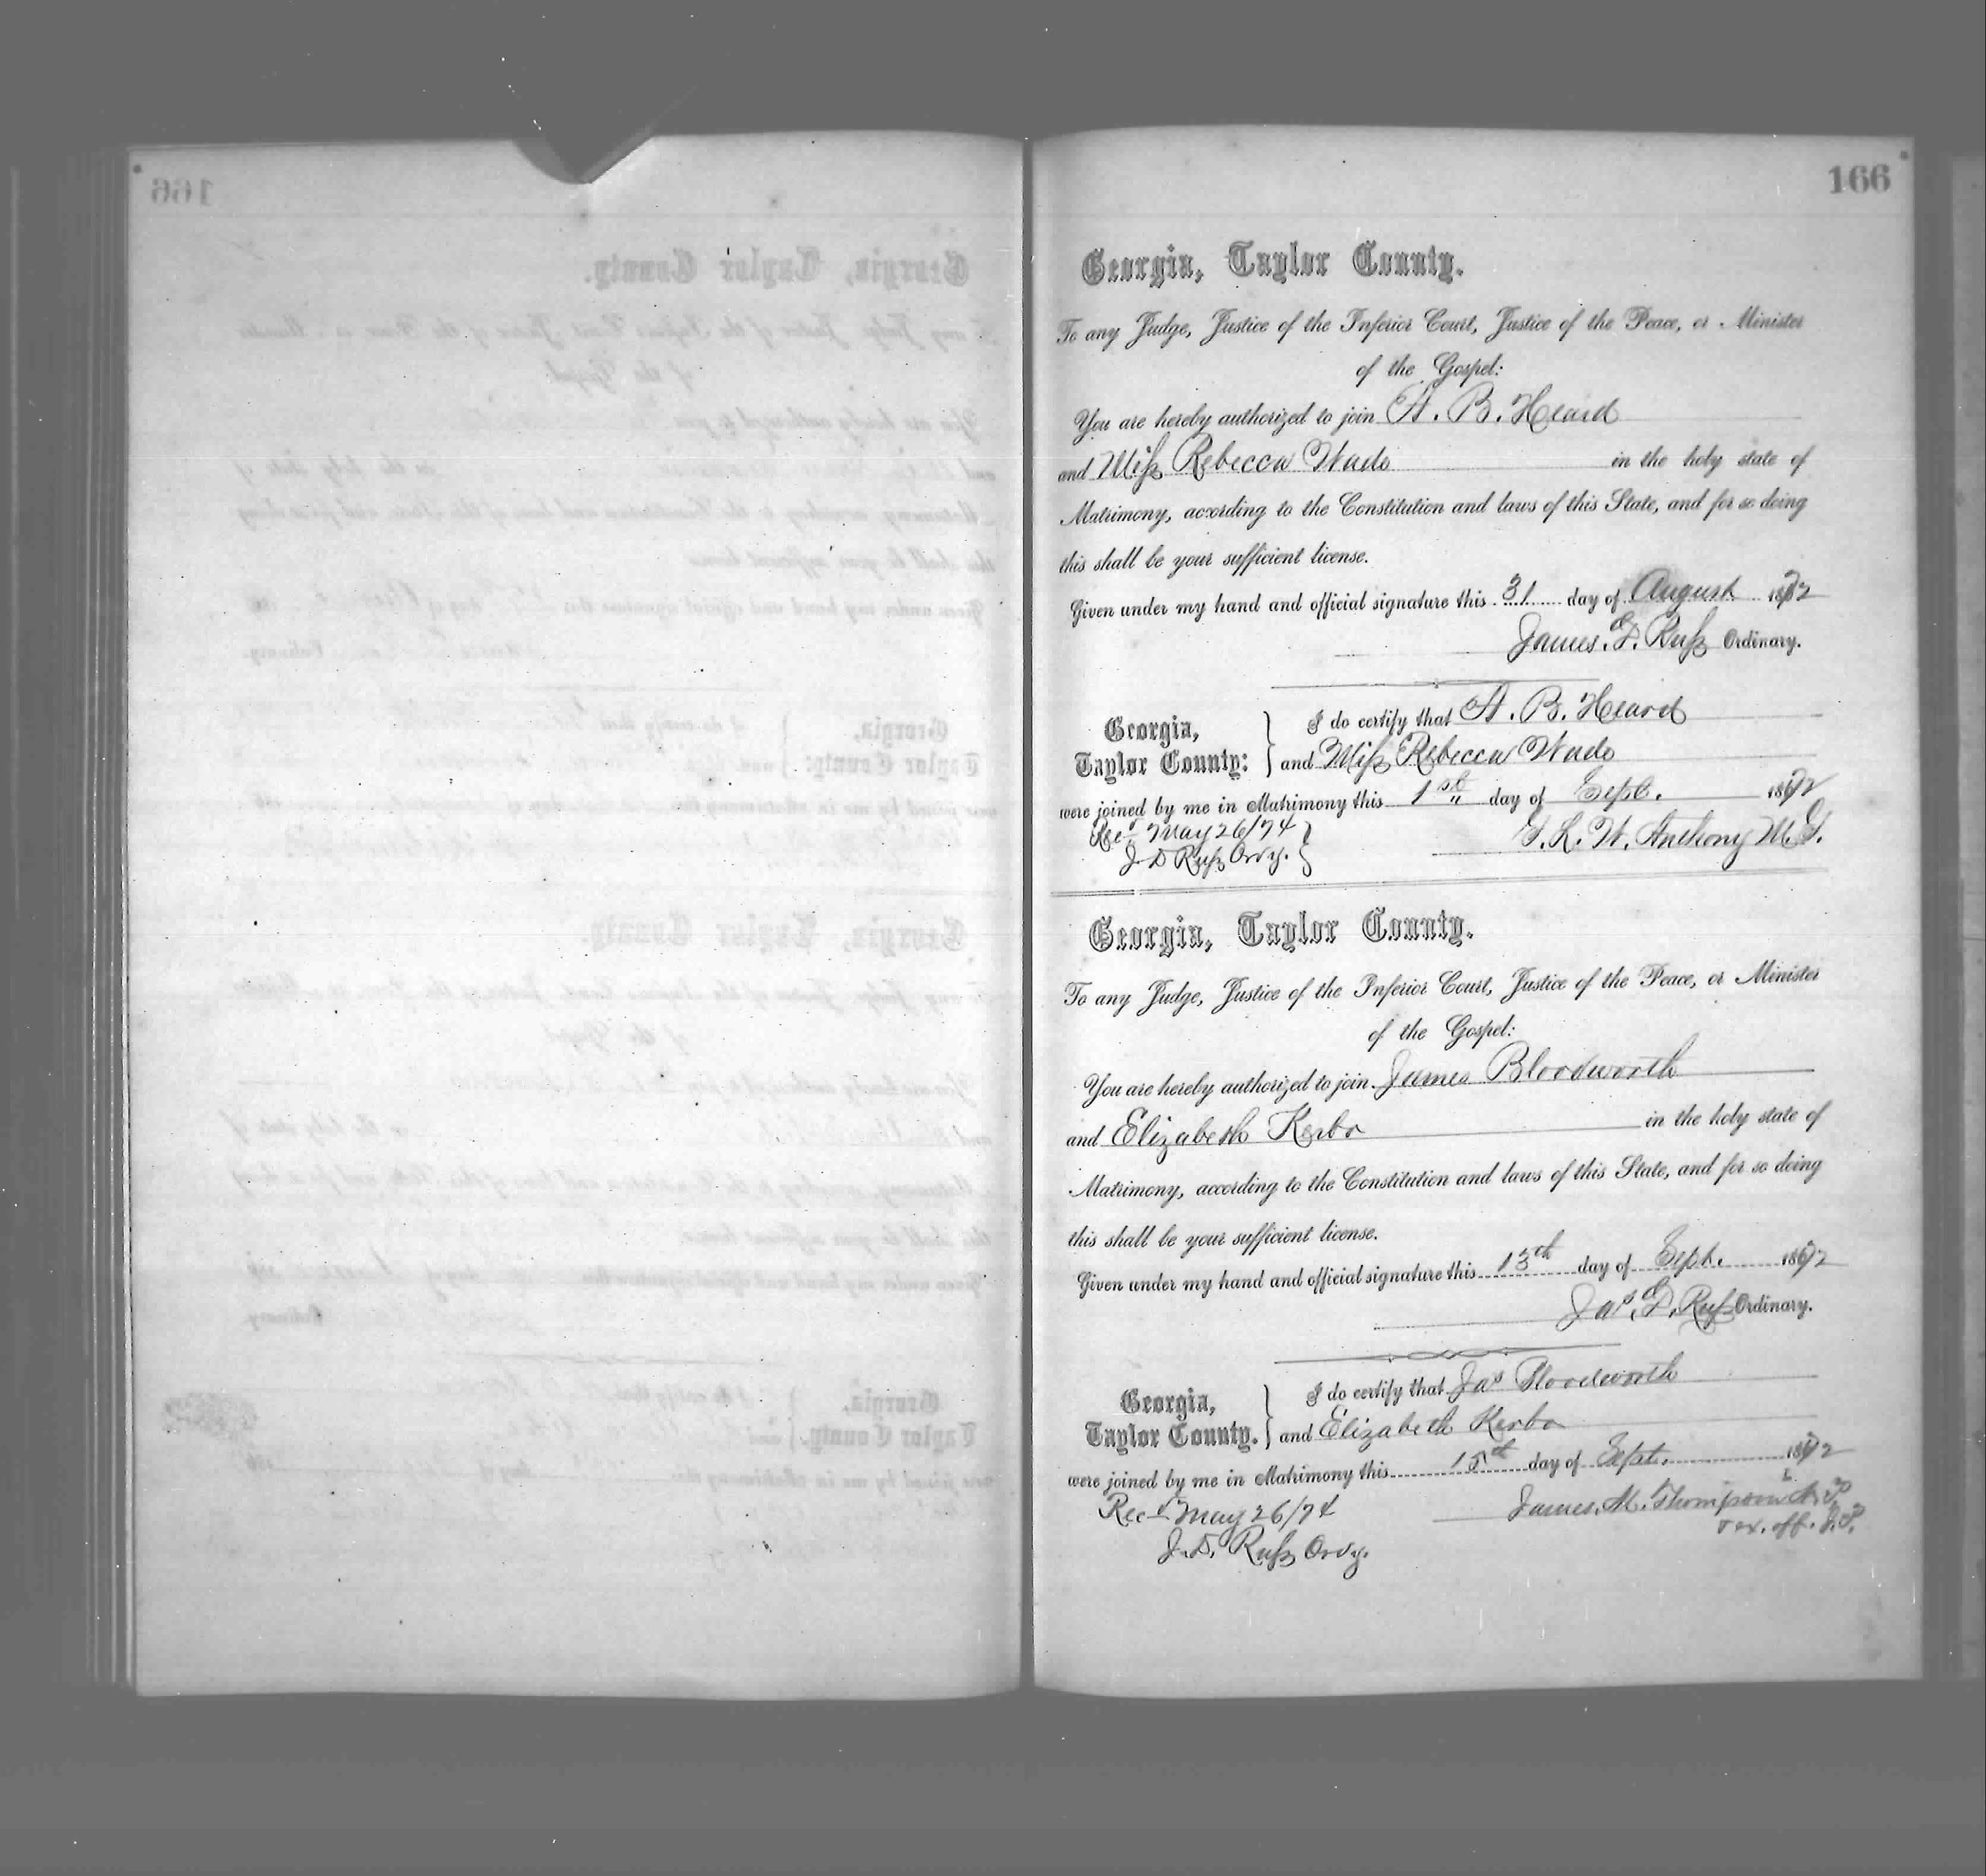 166
Georgia, Taylor County.
To any Judge, Justice of the Inferior Court, Justice of the Peace, or Minister
of the Gospel:
You are hereby authorized to join A. B. Heard
and Miss Rebecca Wade in the holy state of
Matrimony, according to the Constitution and laws of this State, and for so doing
this shall be your sufficient license.
Given under my hand and official signature this 31 day of August 1872
James. D. Russ Ordinary.
Georgia,
Taylor County:
I do certify that A. B. Heard
and Miss Rebecca Wade
were joined by me in Matrimony this 1st day of Sept. 1872
Recd May 26/74
J. D Russ Ordy.
Anthony M. G.
Georgia, Taylor County.
To any Judge, Justice of the Inferior Court, Justice of the Peace, or Minister
of the Gospel:
You are hereby authorized to join James Bloodworth
and Elizabeth Kerbo in the holy state of
Matrimony, according to the Constitution and laws of this State, and for so doing
this shall be your sufficient license.
Given under my hand and official signature this 15th day of Sept. 1872
Jas. D. Russ Ordinary.
Georgia,
Taylor County.
I do certify that Jas Bloodworth
and Elizabeth Kerbo
were joined by me in Matrimony this 15th day of Sept. 1872
Recd May 26/74
James. M. Thompson N. P.
ex. off. J. P.
J. D. Russ Ordy.